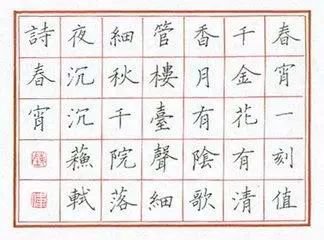 春宵一刻值
千金花有清
香月有陰歌
管樓臺聲細
細秋千院落
夜沉沉蘇軾
詩春宵